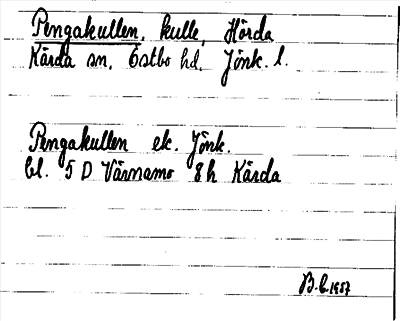 Pengakullen, kulle, Hörda
Kärda sn, Östbo hd, Jönk. l.
Pengakullen ek. Jönk.
bl. 5 D Värnamo 8h Kärda
B.L. 1957